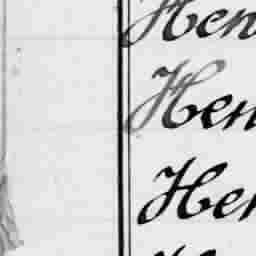 Hen
Hen
Her